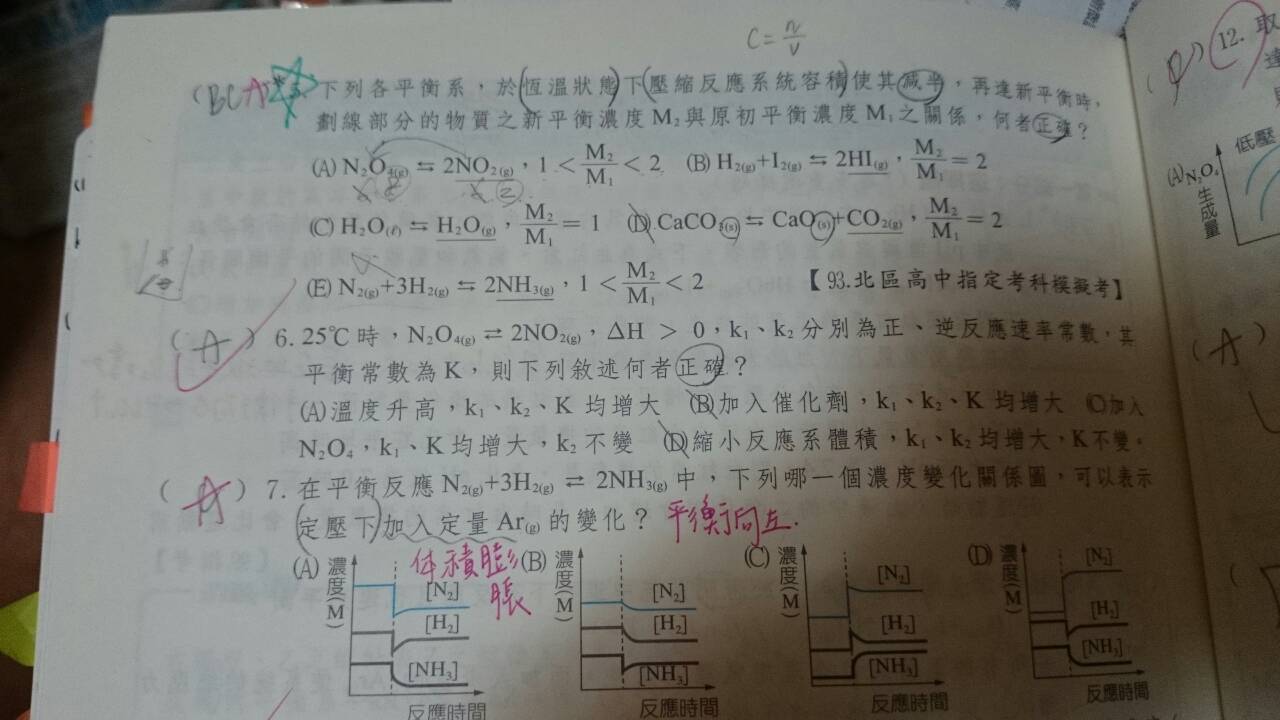 C = n/V
(BCA) 下列各平衡系，於恆溫狀態下壓縮反應系統容積使其減半，再達新平衡時，
劃線部分的物質之新平衡濃度 M₂ 與原初平衡濃度 M₁ 之關係，何者正確？
(A) N₂O₄(g) ⇆ 2NO₂(g)，1 < M₂/M₁ < 2 (B) H₂(g)+I₂(g) ⇆ 2HI(g)，M₂/M₁ = 2
(C) H₂O(ℓ) ⇆ H₂O(g)，M₂/M₁ = 1 (D) CaCO₃(s) ⇆ CaO(s)+CO₂(g)，M₂/M₁ = 2
(E) N₂(g)+3H₂(g) ⇆ 2NH₃(g)，1 < M₂/M₁ < 2 【93.北區高中指定考科模擬考】
(A) 6. 25℃時，N₂O₄(g) ⇄ 2NO₂(g)，ΔH > 0，k₁、k₂ 分別為正、逆反應速率常數，其
平衡常數為 K，則下列敘述何者正確？
(A)溫度升高，k₁、k₂、K 均增大 (B)加入催化劑，k₁、k₂、K 均增大 (C)加入
N₂O₄，k₁、K 均增大，k₂ 不變 (D)縮小反應系體積，k₁、k₂ 均增大，K不變。
(A) 7. 在平衡反應 N₂(g)+3H₂(g) ⇄ 2NH₃(g) 中，下列哪一個濃度變化關係圖，可以表示
定壓下加入定量 Ar(g) 的變化？ 平衡向左.
体積膨
脹
(A) 濃度(M) [N₂] [H₂] [NH₃] 反應時間
(B) 濃度(M) [N₂] [H₂] [NH₃] 反應時間
(C) 濃度(M) [N₂] [H₂] [NH₃] 反應時間
(D) 濃度(M) [N₂] [H₂] [NH₃] 反應時間
12. 取
低壓
(A) N₂O₄生成量
(A)